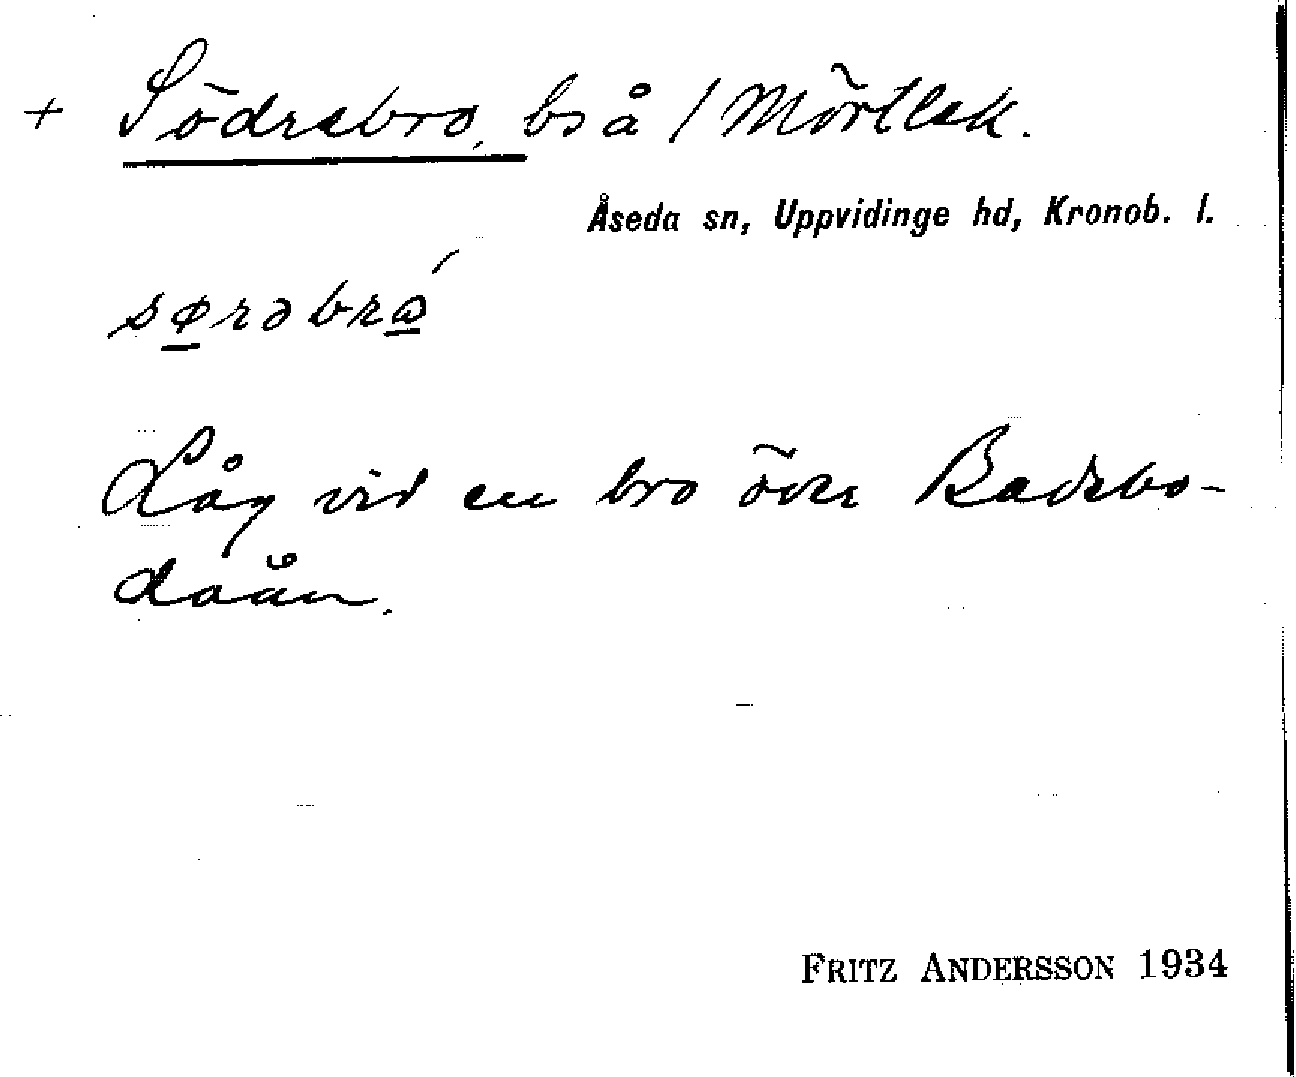 + Södrebro, bs å / Mörtlek.
Åseda sn, Uppvidinge hd, Kronob. l.
sørəbrɷ́
Låg vid en bro över Badebo-
daån.
FRITZ ANDERSSON 1934